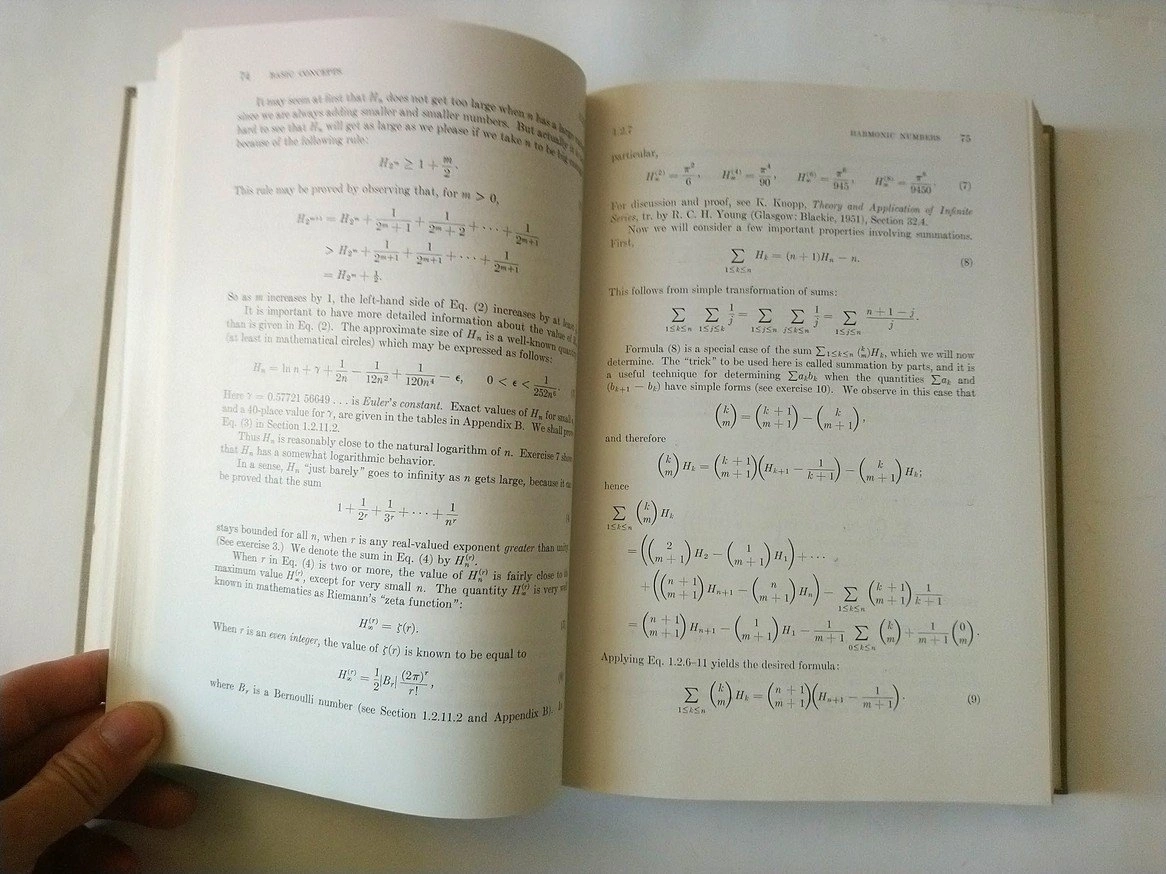 74 BASIC CONCEPTS
It may seem at first that Hₙ does not get too large when n has a large
since we are always adding smaller and smaller numbers. But actually it is
hard to see that Hₙ will get as large as we please if we take n to be big
because of the following rule:
H_{2^m} ≥ 1 + m/2.
This rule may be proved by observing that, for m > 0,
H_{2^{m+1}} = H_{2^m} + 1/(2^m + 1) + 1/(2^m + 2) + · · · + 1/2^{m+1}
> H_{2^m} + 1/2^{m+1} + 1/2^{m+1} + · · · + 1/2^{m+1}
= H_{2^m} + ½.
So as m increases by 1, the left-hand side of Eq. (2) increases by at least
It is important to have more detailed information about the value of
than is given in Eq. (2). The approximate size of Hₙ is a well-known
(at least in mathematical circles) which may be expressed as follows:
Hₙ = ln n + γ + 1/2n − 1/12n² + 1/120n⁴ − ϵ, 0 < ϵ < 1/252n⁶.
Here γ = 0.57721 56649 . . . is Euler's constant. Exact values of Hₙ for small
and a 40-place value for γ, are given in the tables in Appendix B. We shall
Eq. (3) in Section 1.2.11.2.
Thus Hₙ is reasonably close to the natural logarithm of n. Exercise 7
that Hₙ has a somewhat logarithmic behavior.
In a sense, Hₙ "just barely" goes to infinity as n gets large, because it
be proved that the sum
1 + 1/2^r + 1/3^r + · · · + 1/n^r
stays bounded for all n, when r is any real-valued exponent greater than unity
(See exercise 3.) We denote the sum in Eq. (4) by Hₙ^(r).
When r in Eq. (4) is two or more, the value of Hₙ^(r) is fairly close to
maximum value H_∞^(r), except for very small n. The quantity H_∞^(r) is very
known in mathematics as Riemann's "zeta function":
H_∞^(r) = ζ(r).
When r is an even integer, the value of ζ(r) is known to be equal to
H_∞^(r) = 1/2 |B_r| (2π)^r / r!,
where B_r is a Bernoulli number (see Section 1.2.11.2 and Appendix B).
1.2.7 HARMONIC NUMBERS 75
particular,
H_∞^(2) = π²/6, H_∞^(4) = π⁴/90, H_∞^(6) = π⁶/945, H_∞^(8) = π⁸/9450. (7)
For discussion and proof, see K. Knopp, Theory and Application of Infinite
Series, tr. by R. C. H. Young (Glasgow: Blackie, 1951), Section 32.4.
Now we will consider a few important properties involving summations.
First,
∑_{1≤k≤n} H_k = (n + 1)Hₙ − n. (8)
This follows from simple transformation of sums:
∑_{1≤k≤n} ∑_{1≤j≤k} 1/j = ∑_{1≤j≤n} ∑_{j≤k≤n} 1/j = ∑_{1≤j≤n} (n + 1 − j)/j.
Formula (8) is a special case of the sum ∑_{1≤k≤n} (k m)H_k, which we will now
determine. The "trick" to be used here is called summation by parts, and it is
a useful technique for determining ∑a_k b_k when the quantities ∑a_k and
(b_{k+1} − b_k) have simple forms (see exercise 10). We observe in this case that
(k m) = (k + 1 m + 1) − (k m + 1),
and therefore
(k m) H_k = (k + 1 m + 1)(H_{k+1} − 1/(k + 1)) − (k m + 1) H_k;
hence
∑_{1≤k≤n} (k m) H_k
= ((2 m + 1) H₂ − (1 m + 1) H₁) + · · ·
+ ((n + 1 m + 1) H_{n+1} − (n m + 1) Hₙ) − ∑_{1≤k≤n} (k + 1 m + 1) 1/(k + 1)
= (n + 1 m + 1) H_{n+1} − (1 m + 1) H₁ − 1/(m + 1) ∑_{0≤k≤n} (k m) + 1/(m + 1) (0 m).
Applying Eq. 1.2.6–11 yields the desired formula:
∑_{1≤k≤n} (k m) H_k = (n + 1 m + 1)(H_{n+1} − 1/(m + 1)). (9)